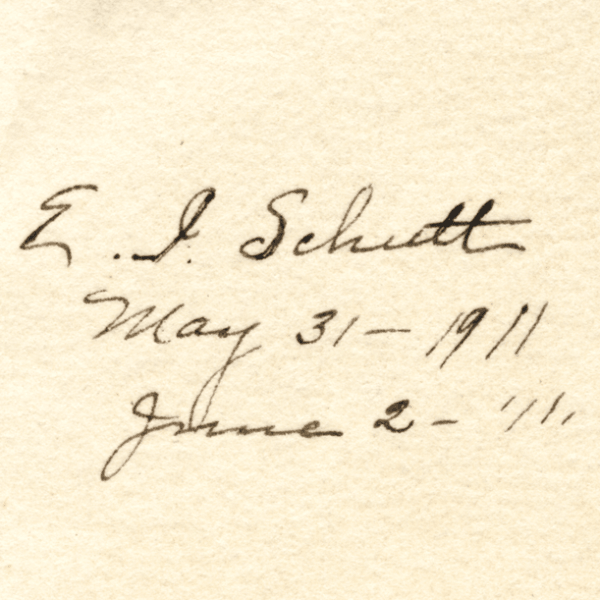 E. I. Schutt
May 31 - 1911
June 2 - '11.